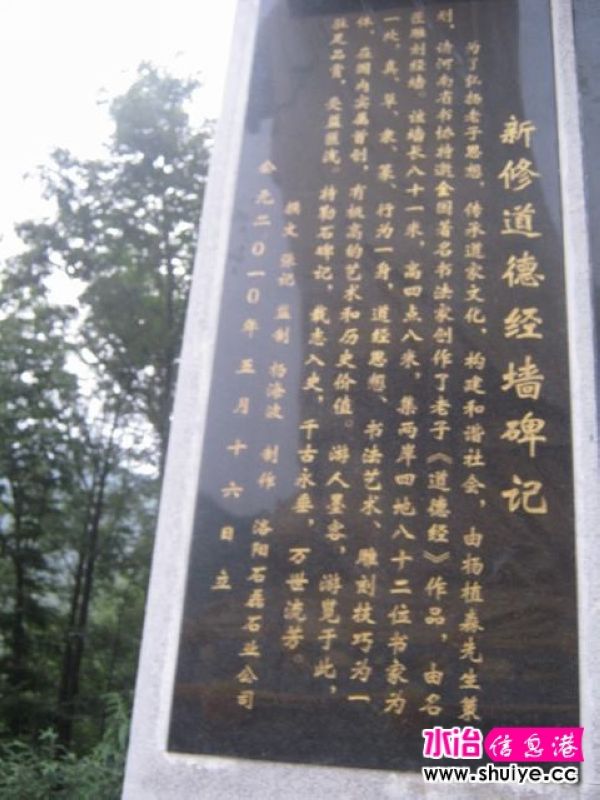 新修道德经墙碑记
为了弘扬老子思想，传承道家文化，构建和谐社会，由杨植森先生策
划，请河南省书协特邀全国著名书法家创作了老子《道德经》作品，由名
匠雕刻经墙。该墙长八十一米，高四点八米，集两岸四地八十二位书家为
一处，真、草、隶、篆、行为一身，道经思想、书法艺术、雕刻技巧为一
体，在国内实属首创，有极高的艺术和历史价值。游人墨客，游览于此，
驻足品赏，受益匪浅。特勒石碑记，载志入史，千古永垂，万世流芳。
撰文 张记 监制 杨海波 制作 洛阳石磊石业公司
公元二〇一〇年五月十六日立
水冶信息港
www.shuiye.cc